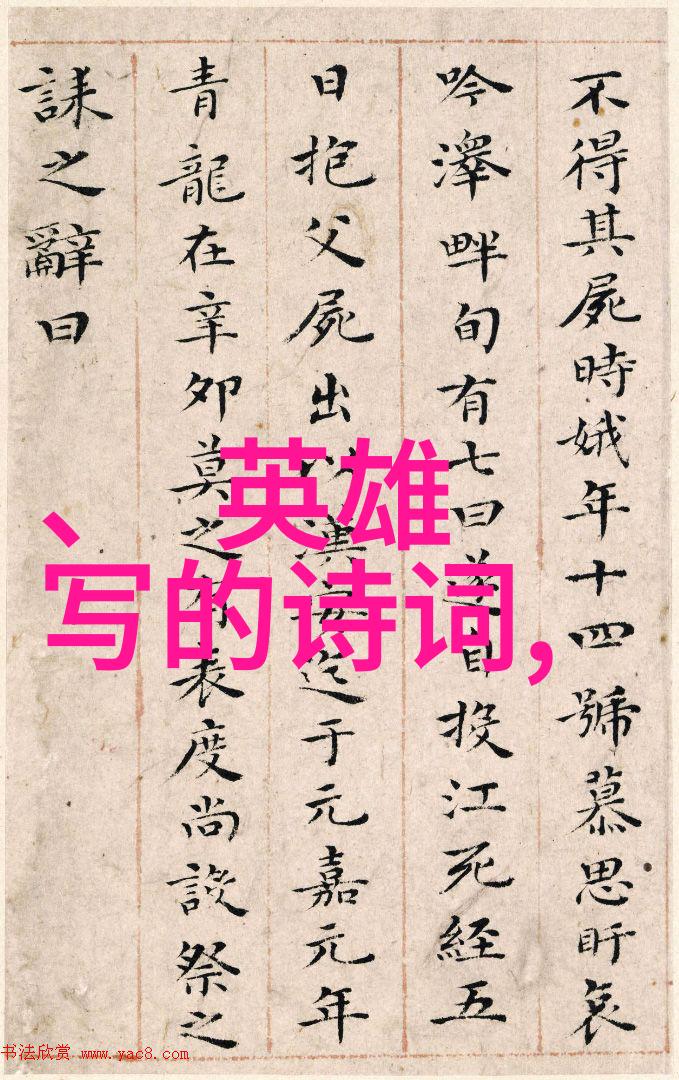 不得其屍時娥年十四號慕思盱哀
吟澤畔旬有七日遂自投江死經五
日抱父屍出以漢安迄于元嘉元年
青龍在辛夘莫之有表度尚設祭之
誄之辭曰
、英雄
写的诗词,
书法欣赏 www.yac8.com